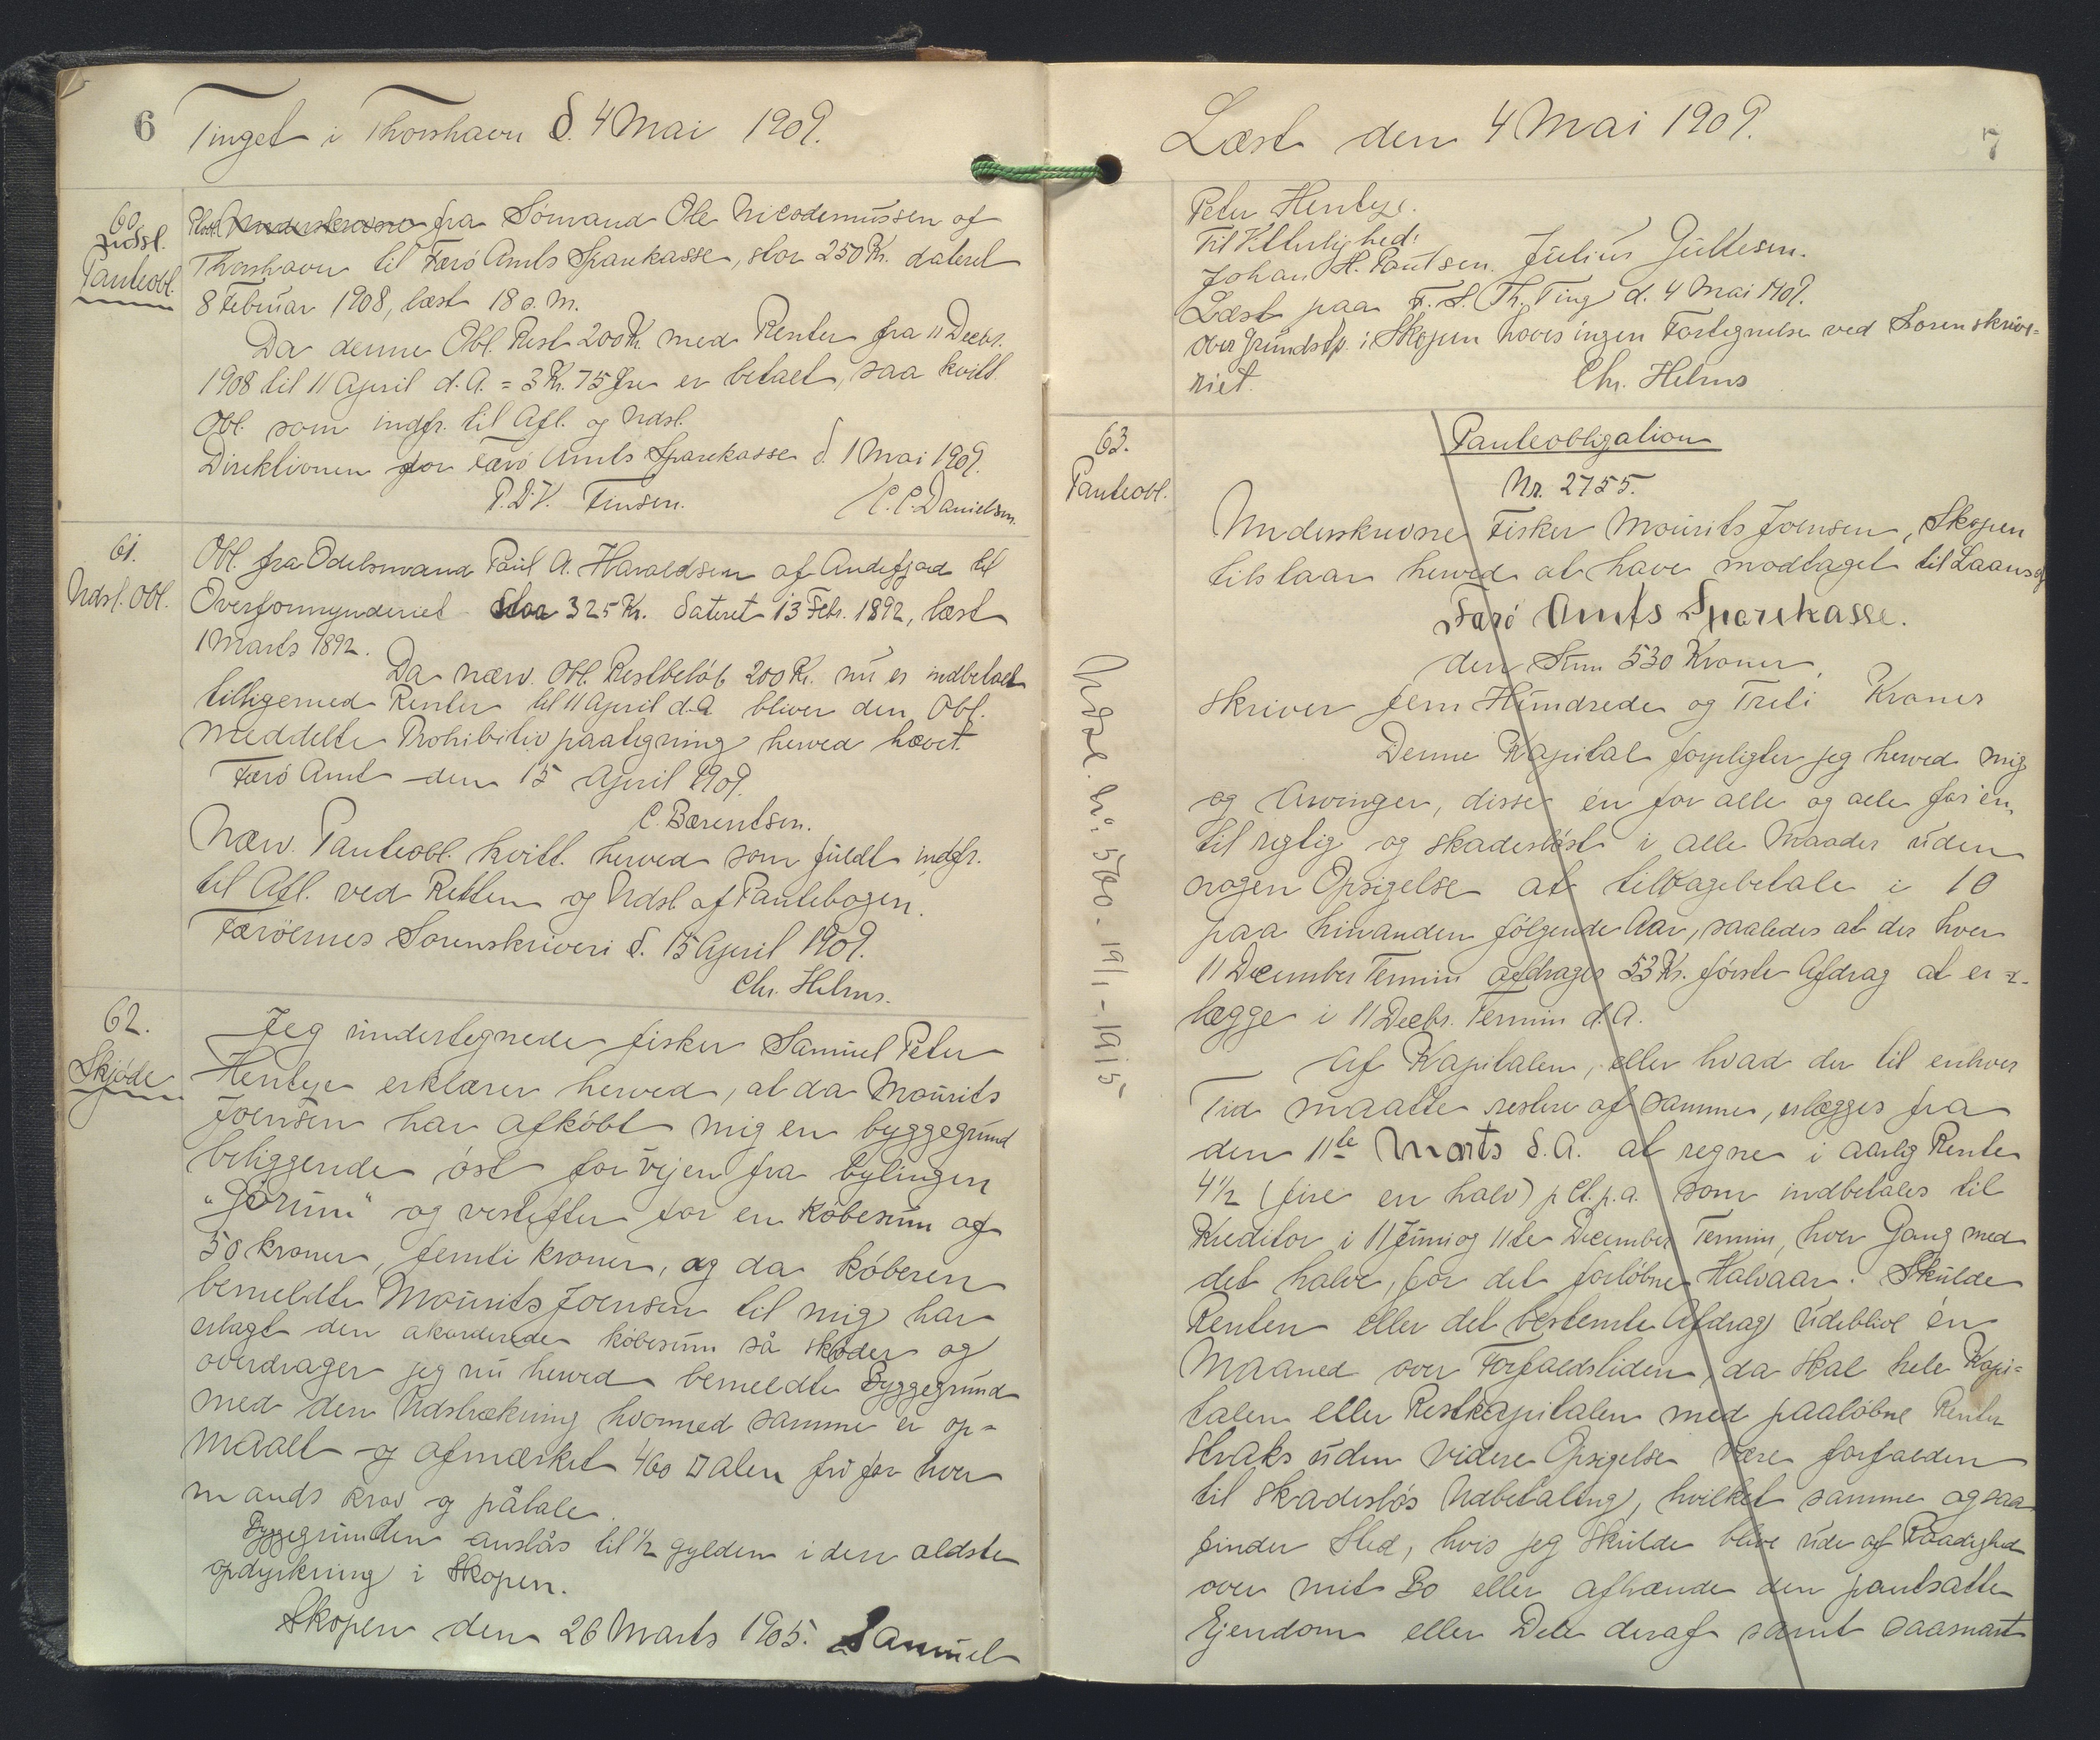 6
Tinget i Thorshavn d. 4 Mai 1909.
60.
Udsl.
Panteobl.
fra Sömand Ole Nicodemussen af
Thorshavn til Færö Amts Sparekasse, stor 250 Kr. dateret
8 Februar 1908, læst 18 s. M.
Da denne Obl. Rest 200 Kr. med Renter fra 11 Decbr.
1908 til 11 April d.A. = 3 Kr. 75 Øre er betalt, saa kvitt.
Obl. som indfr. til Afl. og Udsl.
Direktionen for Færö Amts Sparekasse d. 1 Mai 1909.
P.D.V. Finsen. C.C. Danielsen.
61.
Udsl. Obl.
Obl. fra Odelsmand Paul A. Haraldsen af Andefjord til
Overformynderiet stor 325 Kr. dateret 13 Febr. 1892, læst
1 Marts 1892.
Da næv. Obl. Restbelöb 200 Kr. nu er indbetalt
tilligemed Renter til 11 April d.A. bliver den Obl.
meddelte Prohibitiv paategning herved hævet.
Færö Amt den 15 April 1909.
C. Bærentsen.
Næv. Panteobl. kvitt. herved som fuldt indfr.
til Afl. ved Retten og Udsl. af Pantebogen.
Færöernes Sorenskriveri d. 15 April 1909.
Chr. Helms.
62.
Skjöde
Jeg undertegnede fisker Samuel Peter
Hentze erklærer herved, at da Mourits
Joensen har afköbt mig en byggegrund
beliggende öst for vejen fra bylingen
"Görum" og vestefter for en Köbesum af
50 kroner, femti kroner, og da köberen
bemeldte Mourits Joensen til mig har
erlagt den akorderede köbesum så sköder og
overdrager jeg nu herved bemeldte Byggegrund
med den Udstrækning hvormed samme er op-
maalt og afmærket 460 □ Alen fri for hver
mands krav og påtale.
Byggegrunden anslås til ½ gylden i den ældste
opdyrkning i Skopen.
Skopen den 26 Marts 1905. Samuel
Læst den 4 Mai 1909.
7
Peter Hentze.
Til Vitterlighed:
Johan H. Poulsen. Julius Gullesen.
Læst paa F. S. Th. Ting d. 4 Mai 1909.
Over Grundstk. i Skopen haves ingen Fortegnelse ved Sorenskrive-
riet.
Chr. Helms
63.
Panteobl.
Udsl. No. 500 - 19/1 - 1915
Panteobligation
Nr. 2755.
Underskrevne Fisker Mourits Joensen, Skopen
tilstaar herved at have modtaget til Laans af
Færö Amts Sparekasse.
den Sum 530 Kroner,
skriver fem Hundrede og Treti Kroner
Denne Kapital forpligter jeg herved mig
og Arvinger, disse én for alle og alle for én,
til rigtig og skadeslöst i alle Maader uden
nogen Opsigelse at tilbagebetale i 10
paa hinanden fölgende Aar, saaledes at der hver
11 December Termin afdrages 53 Kr. förste Afdrag at er-
lægge i 11 Decbr. Termin d.A.
Af Kapitalen, eller hvad der til enhver
Tid maatte restere af samme, erlægges fra
den 11te Marts d.A. at regne i aarlig Rente
4½ (fire en halv) p Ct. p.a. som indbetales til
Kreditor i 11 Juni og 11te December Termin, hver Gang med
det halve, for det forlöbne Halvaar. Skulde
Renten eller det bestemte Afdrag udeblive én
Maaned over Forfaldstiden, da skal hele Kapi-
talen eller Restkapitalen med paalöbne Renter
straks uden videre Opsigelse være forfalden
til skadeslös Udbetaling, hvilket samme ogsaa
finder Sted, hvis jeg skulde blive ude af Raadighed
over mit Bo eller afhænde den pantsatte
Ejendom eller Dele deraf samt saasnart